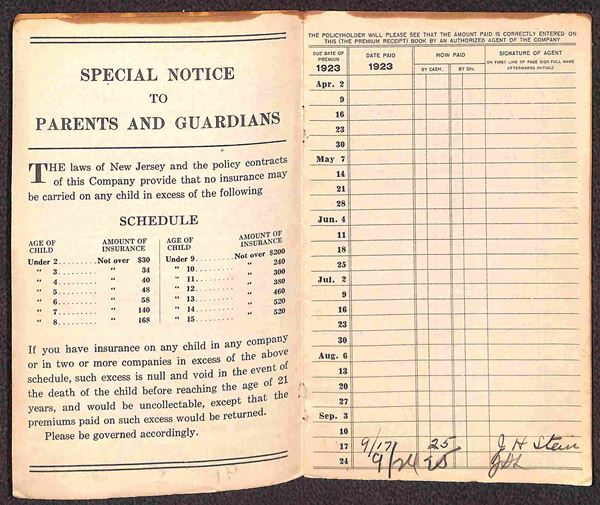 SPECIAL NOTICE
TO
PARENTS AND GUARDIANS
THE laws of New Jersey and the policy contracts
of this Company provide that no insurance may
be carried on any child in excess of the following
SCHEDULE
AGE OF CHILD AMOUNT OF INSURANCE AGE OF CHILD AMOUNT OF INSURANCE
Under 2...... Not over $30 Under 9...... Not over $200
" 3........ " 34 " 10........ " 240
" 4........ " 40 " 11........ " 300
" 5........ " 48 " 12........ " 380
" 6........ " 58 " 13........ " 460
" 7........ " 140 " 14........ " 520
" 8........ " 168 " 15........ " 520
If you have insurance on any child in any company
or in two or more companies in excess of the above
schedule, such excess is null and void in the event of
the death of the child before reaching the age of 21
years, and would be uncollectable, except that the
premiums paid on such excess would be returned.
Please be governed accordingly.
THE POLICYHOLDER WILL PLEASE SEE THAT THE AMOUNT PAID IS CORRECTLY ENTERED ON
THIS (THE PREMIUM RECEIPT) BOOK BY AN AUTHORIZED AGENT OF THE COMPANY
DUE DATE OF PREMIUM 1923 DATE PAID 1923 HOW PAID BY CASH. BY DIV. SIGNATURE OF AGENT ON FIRST LINE OF PAGE SIGN FULL NAME AFTERWARDS INITIALS
Apr. 2
9
16
23
30
May 7
14
21
28
Jun. 4
11
18
25
Jul. 2
9
16
23
30
Aug. 6
13
20
27
Sep. 3
10
17 9/17 25 J H Stein
24 9/24 25